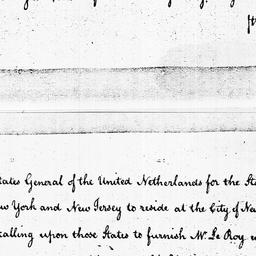 tates General of the United Netherlands for the Sta
w York and New Jersey to reside at the City of Ne
calling upon those States to furnish Mr. Le Roy w